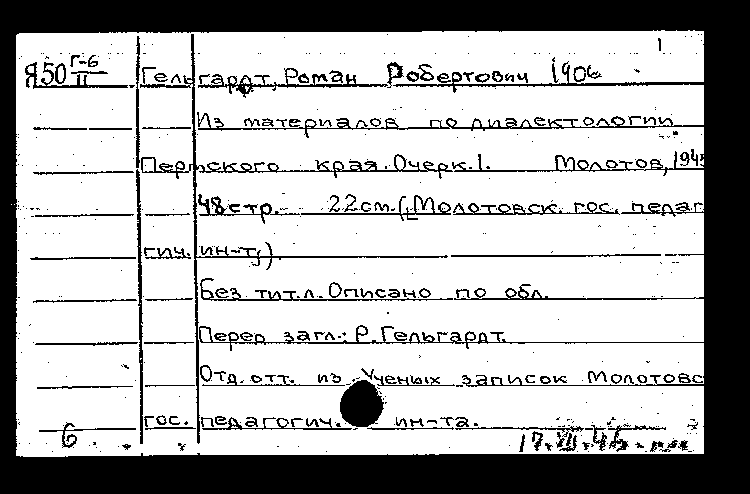 1
Я50 Г-6/II Гельгардт, Роман Робертович 1906
Из материалов по диалектологии
Пермского края. Очерк.1. Молотов, 194
48 стр. - 22см. (Молотовск. гос. педаг
гич. ин-т).
Без тит.л. Описано по обл.
Перед загл.: Р. Гельгардт.
Отд. отт. из Ученых записок Молотовс
гос. педагогич. ин-та.
6